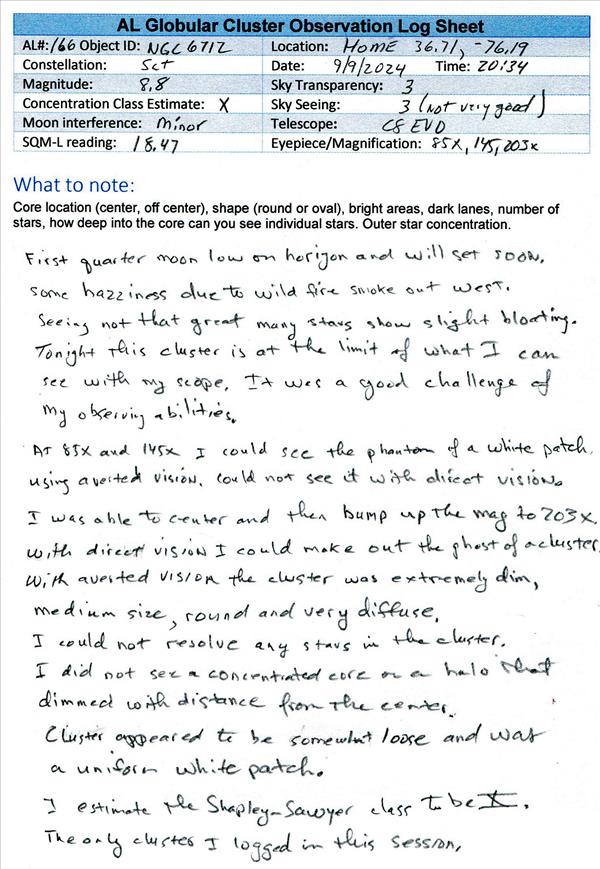 AL Globular Cluster Observation Log Sheet
AL#: 166 Object ID: NGC 6712 Location: Home 36.71, -76.19
Constellation: Sct Date: 9/9/2024 Time: 20:34
Magnitude: 8.8 Sky Transparency: 3
Concentration Class Estimate: X Sky Seeing: 3 (Not very good)
Moon interference: Minor Telescope: C8 EVO
SQM-L reading: 18.47 Eyepiece/Magnification: 85x, 145, 203x
What to note:
Core location (center, off center), shape (round or oval), bright areas, dark lanes, number of
stars, how deep into the core can you see individual stars. Outer star concentration.
First quarter moon low on horizon and will set soon.
some hazziness due to wild fire smoke out west.
Seeing not that great many stars show slight bloating.
Tonight this cluster is at the limit of what I can
see with my scope. It was a good challenge of
my observing abilities.
At 85x and 145x I could see the phantom of a white patch.
using averted vision. could not see it with direct vision.
I was able to center and then bump up the mag to 203x.
with direct vision I could make out the ghost of a cluster.
With averted vision the cluster was extremely dim,
medium size, round and very diffuse.
I could not resolve any stars in the cluster.
I did not see a concentrated core or a halo that
dimmed with distance from the center.
Cluster appeared to be somewhat loose and was
a uniform white patch.
I estimate the Shapley-Sawyer class to be X.
The only cluster I logged in this session.